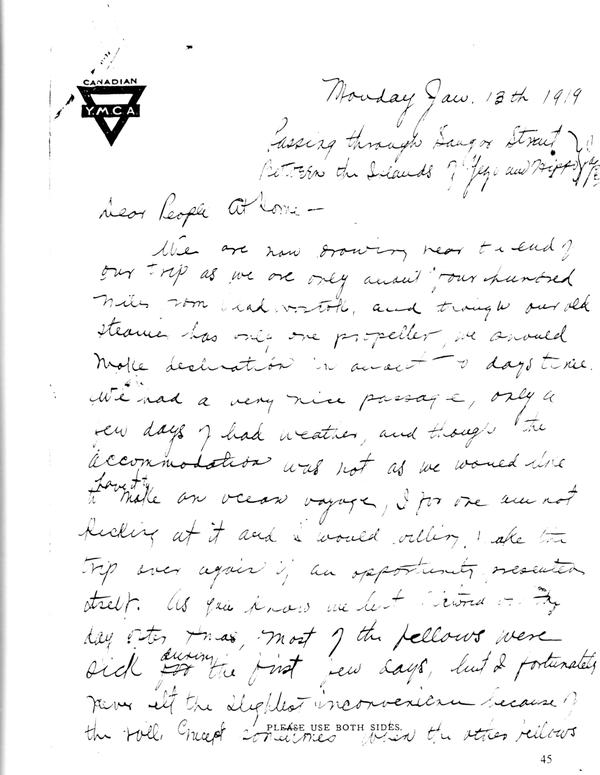 CANADIAN
Y.M.C.A
Monday Jan. 13th 1919
Passing through Sangar Strait
Between the Islands of Yezo and
Dear People At Home —
We are now drawing near the end of
our trip as we are only about four hundred
miles from Vladivostok, and though our old
steamer has only one propeller, we should
make destination in about two days time.
We had a very nice passage, only a
few days of bad weather, and though the
accommodation was not as we would like
to have it to make an ocean voyage, I for one am not
kicking at it and I would willingly take the
trip over again if an opportunity presented
itself. As you know we left on the
day after Xmas, most of the fellows were
sick during the first few days, but I fortunately
never felt the slightest inconvenience because of
the roll except sometimes when the other fellows
PLEASE USE BOTH SIDES.
45